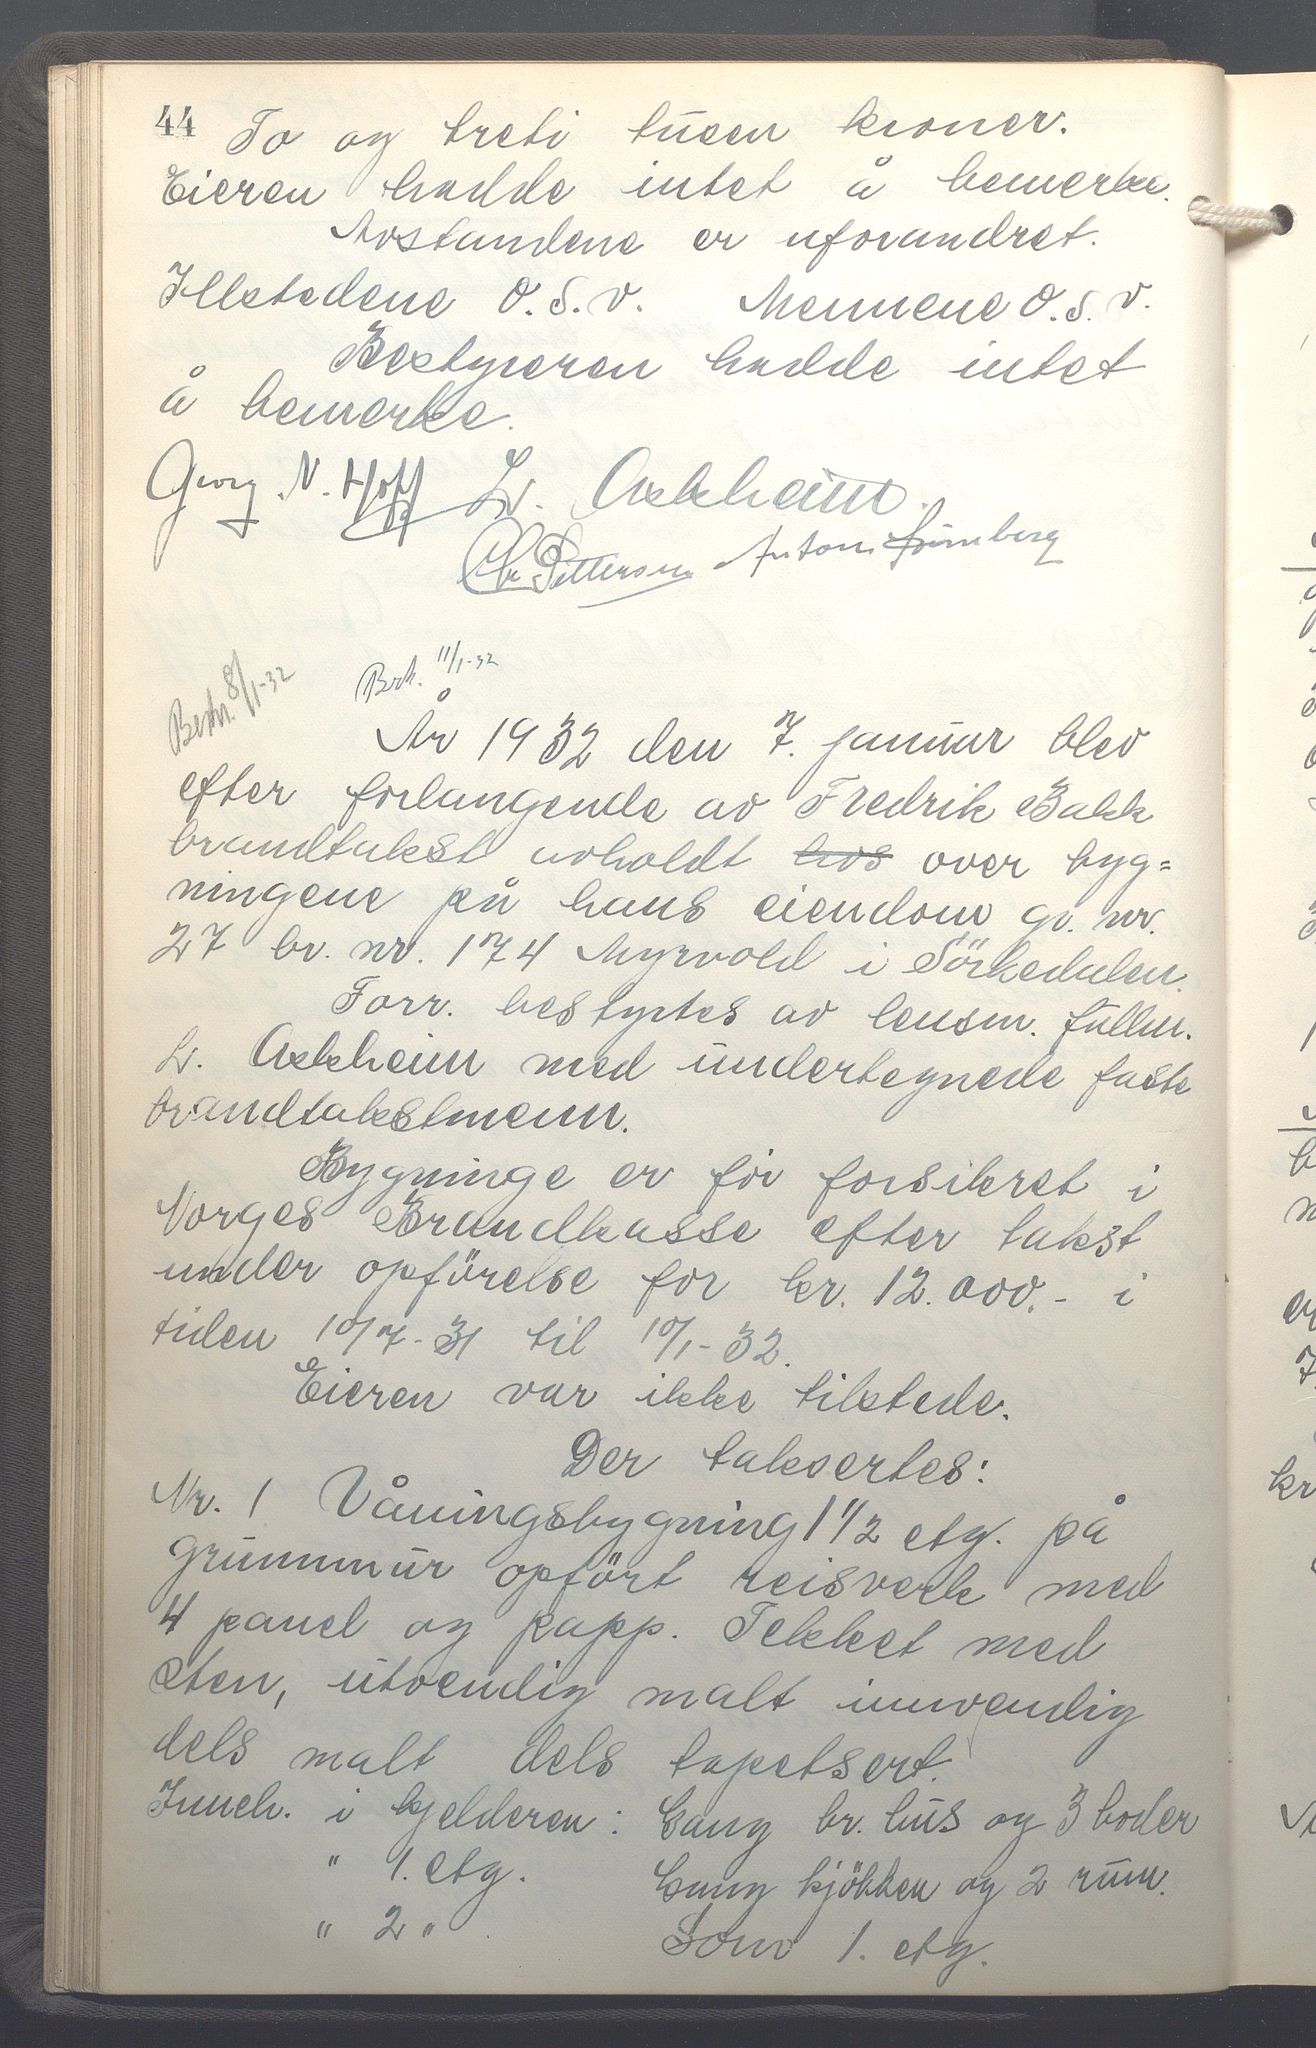 44
To og treti tusen kroner.
Eieren hadde intet å bemerke.
Avstandene er uforandret.
Illstedene O.S.V. Mennene O.S.V.
Bestyreren hadde intet
å bemerke.
Georg. N. Hoff L. Askheim.
Chr Pettersen Anton
8/1-32
Berk. 11/1-32
År 1932 den 7. januar blev
efter forlangende av Fredrik Bakk
brandtakst avholdt hos over byg=
ningene på hans eiendom gr. nr.
27 br. nr. 174 Myrvold i Sörkedalen.
Forr. bestyrtes av lensm. fullm.
L. Askheim med undertegnede faste
brandtakstmenn.
Bygninge er för forsikret i
Norges Brandkasse efter takst
under opförelse for kr. 12.000.- i
tiden 10/7-31 til 10/1-32.
Eieren var ikke tilstede.
Der taksertes:
Nr. 1 Våningsbygning 1 1/2 etg. på
grunnmur opfört reisverk med
4 panel og papp. Tekket med
sten, utvendig malt innvendig
dels malt dels tapetsert.
Inneh. i kjelderen: Gang br. hus og 3 boder
" 1. etg. Gang kjökken og 2 rum.
" 2 " Som 1. etg.